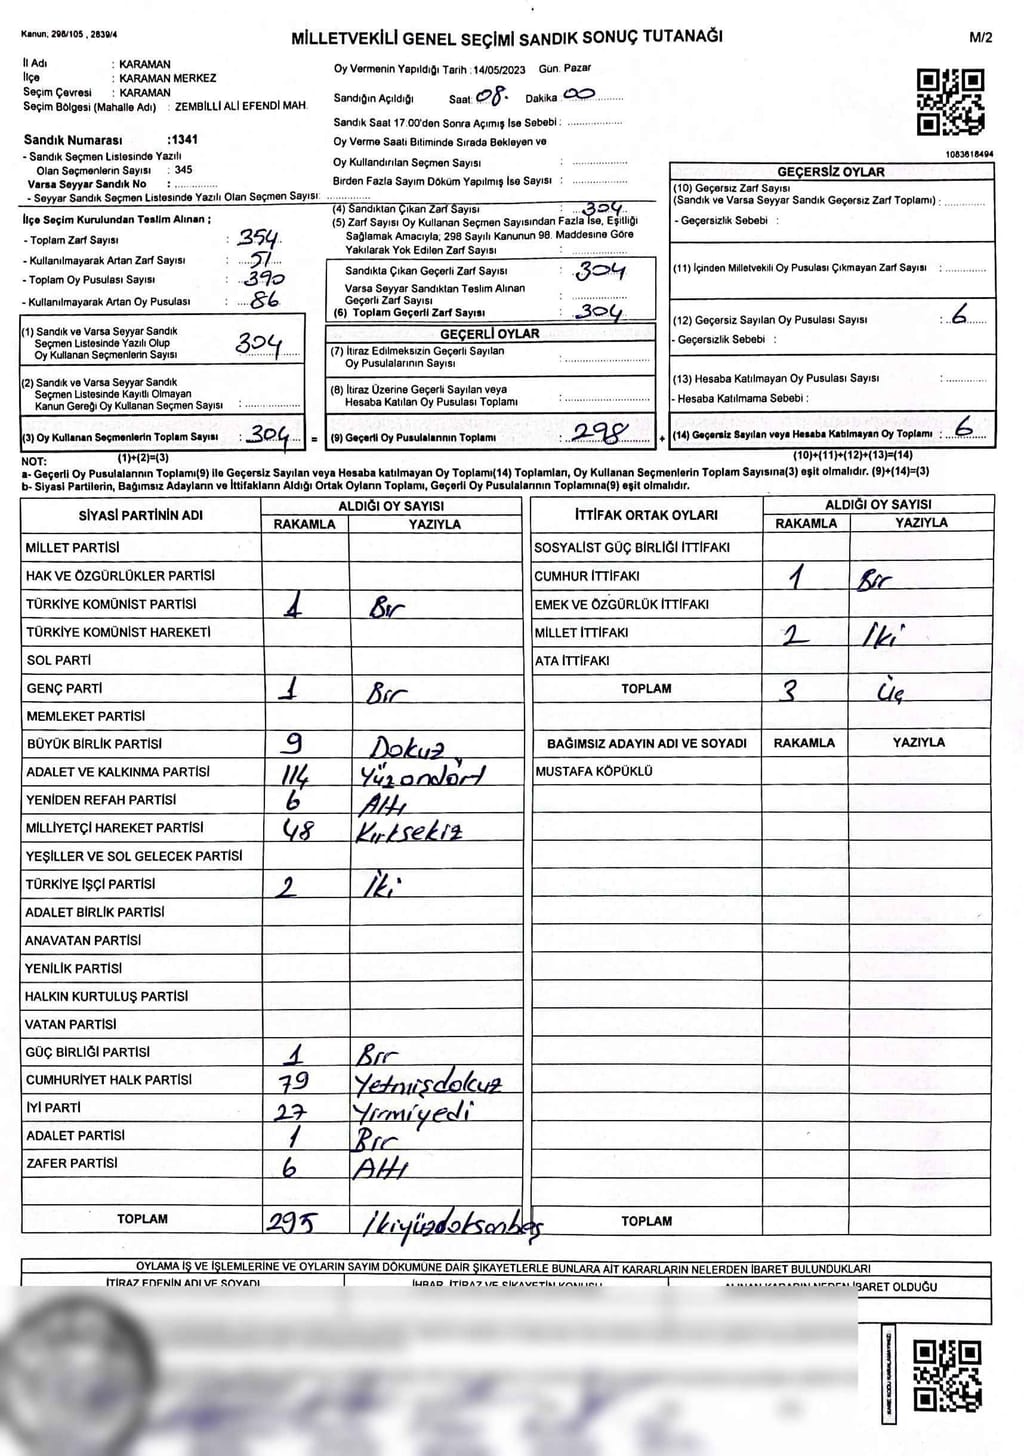 Kanun: 298/105 , 2839/4
MİLLETVEKİLİ GENEL SEÇİMİ SANDIK SONUÇ TUTANAĞI
M/2
İl Adı : KARAMAN
İlçe : KARAMAN MERKEZ
Seçim Çevresi : KARAMAN
Seçim Bölgesi (Mahalle Adı) : ZEMBİLLİ ALİ EFENDİ MAH.
Oy Vermenin Yapıldığı Tarih : 14/05/2023 Gün: Pazar
Sandığın Açıldığı Saat: 08. Dakika: 00
Sandık Saat 17:00'den Sonra Açımış İse Sebebi :
Sandık Numarası :1341
- Sandık Seçmen Listesinde Yazılı
Olan Seçmenlerin Sayısı : 345
Varsa Seyyar Sandık No :
- Seyyar Sandık Seçmen Listesinde Yazılı Olan Seçmen Sayısı:
Oy Verme Saati Bitiminde Sırada Bekleyen ve
Oy Kullandırılan Seçmen Sayısı :
Birden Fazla Sayım Döküm Yapılmış İse Sayısı :
1083618494
İlçe Seçim Kurulundan Teslim Alınan ;
- Toplam Zarf Sayısı : 354
- Kullanılmayarak Artan Zarf Sayısı : 51
- Toplam Oy Pusulası Sayısı : 390
- Kullanılmayarak Artan Oy Pusulası : 86
(1) Sandık ve Varsa Seyyar Sandık
Seçmen Listesinde Yazılı Olup
Oy Kullanan Seçmenlerin Sayısı 304
(2) Sandık ve Varsa Seyyar Sandık
Seçmen Listesinde Kayıtlı Olmayan
Kanun Gereği Oy Kullanan Seçmen Sayısı :
(3) Oy Kullanan Seçmenlerin Toplam Sayısı : 304 =
(4) Sandıktan Çıkan Zarf Sayısı : 304
(5) Zarf Sayısı Oy Kullanan Seçmen Sayısından Fazla İse, Eşitliği
Sağlamak Amacıyla; 298 Sayılı Kanunun 98. Maddesine Göre
Yakılarak Yok Edilen Zarf Sayısı :
Sandıkta Çıkan Geçerli Zarf Sayısı : 304
Varsa Seyyar Sandıktan Teslim Alınan
Geçerli Zarf Sayısı :
(6) Toplam Geçerli Zarf Sayısı : 304
GEÇERLİ OYLAR
(7) İtiraz Edilmeksizin Geçerli Sayılan
Oy Pusulalarının Sayısı :
(8) İtiraz Üzerine Geçerli Sayılan veya
Hesaba Katılan Oy Pusulası Toplamı :
(9) Geçerli Oy Pusulalarının Toplamı : 298 +
GEÇERSİZ OYLAR
(10) Geçersiz Zarf Sayısı
(Sandık ve Varsa Seyyar Sandık Geçersiz Zarf Toplamı) :
- Geçersizlik Sebebi :
(11) İçinden Milletvekili Oy Pusulası Çıkmayan Zarf Sayısı :
(12) Geçersiz Sayılan Oy Pusulası Sayısı : 6
- Geçersizlik Sebebi :
(13) Hesaba Katılmayan Oy Pusulası Sayısı :
- Hesaba Katılmama Sebebi :
(14) Geçersiz Sayılan veya Hesaba Katılmayan Oy Toplamı : 6
NOT: (1)+(2)=(3)
(10)+(11)+(12)+(13)=(14)
a- Geçerli Oy Pusulalarının Toplamı(9) ile Geçersiz Sayılan veya Hesaba katılmayan Oy Toplamı(14) Toplamları, Oy Kullanan Seçmenlerin Toplam Sayısına(3) eşit olmalıdır. (9)+(14)=(3)
b- Siyasi Partilerin, Bağımsız Adayların ve İttifakların Aldığı Ortak Oyların Toplamı, Geçerli Oy Pusulalarının Toplamına(9) eşit olmalıdır.
SİYASİ PARTİNİN ADI
ALDIĞI OY SAYISI
RAKAMLA YAZIYLA
MİLLET PARTİSİ
HAK VE ÖZGÜRLÜKLER PARTİSİ
TÜRKİYE KOMÜNİST PARTİSİ 1 Bir
TÜRKİYE KOMÜNİST HAREKETİ
SOL PARTİ
GENÇ PARTİ 1 Bir
MEMLEKET PARTİSİ
BÜYÜK BİRLİK PARTİSİ 9 Dokuz
ADALET VE KALKINMA PARTİSİ 114 Yüzondört
YENİDEN REFAH PARTİSİ 6 Altı
MİLLİYETÇİ HAREKET PARTİSİ 48 Kırksekiz
YEŞİLLER VE SOL GELECEK PARTİSİ
TÜRKİYE İŞÇİ PARTİSİ 2 İki
ADALET BİRLİK PARTİSİ
ANAVATAN PARTİSİ
YENİLİK PARTİSİ
HALKIN KURTULUŞ PARTİSİ
VATAN PARTİSİ
GÜÇ BİRLİĞİ PARTİSİ 1 Bir
CUMHURİYET HALK PARTİSİ 79 Yetmişdokuz
İYİ PARTİ 27 Yirmiyedi
ADALET PARTİSİ 1 Bir
ZAFER PARTİSİ 6 Altı
TOPLAM 295 İkiyüzdoksanbeş
İTTİFAK ORTAK OYLARI
ALDIĞI OY SAYISI
RAKAMLA YAZIYLA
SOSYALİST GÜÇ BİRLİĞİ İTTİFAKI
CUMHUR İTTİFAKI 1 Bir
EMEK VE ÖZGÜRLÜK İTTİFAKI
MİLLET İTTİFAKI 2 İki
ATA İTTİFAKI
TOPLAM 3 Üç
BAĞIMSIZ ADAYIN ADI VE SOYADI RAKAMLA YAZIYLA
MUSTAFA KÖPÜKLÜ
TOPLAM
OYLAMA İŞ VE İŞLEMLERİNE VE OYLARIN SAYIM DÖKÜMÜNE DAİR ŞİKAYETLERLE BUNLARA AİT KARARLARIN NELERDEN İBARET BULUNDUKLARI
İTİRAZ EDENİN ADI VE SOYADI
İHBAR, İTİRAZ VE ŞİKAYETİN KONUSU
ALINAN KARARIN NEDEN İBARET OLDUĞU